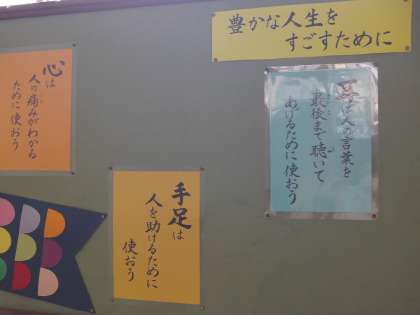 豊かな人生を
すごすために
耳は人の言葉を
最後まで聴いて
あげるために使おう
手足は
人を助けるために
使おう
心は
人の痛みがわかる
ために使おう